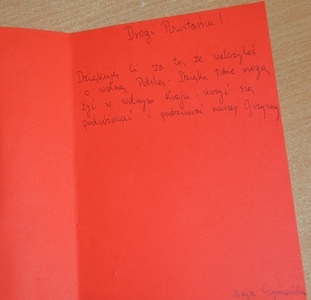 Drogi Powstańcu!
Dziękuję Ci za to, że walczyłeś
o wolną Polskę. Dzięki Tobie mogę
żyć w wolnym kraju, uczyć się
podróżować i podziwiać naszą Ojczyznę
Maja